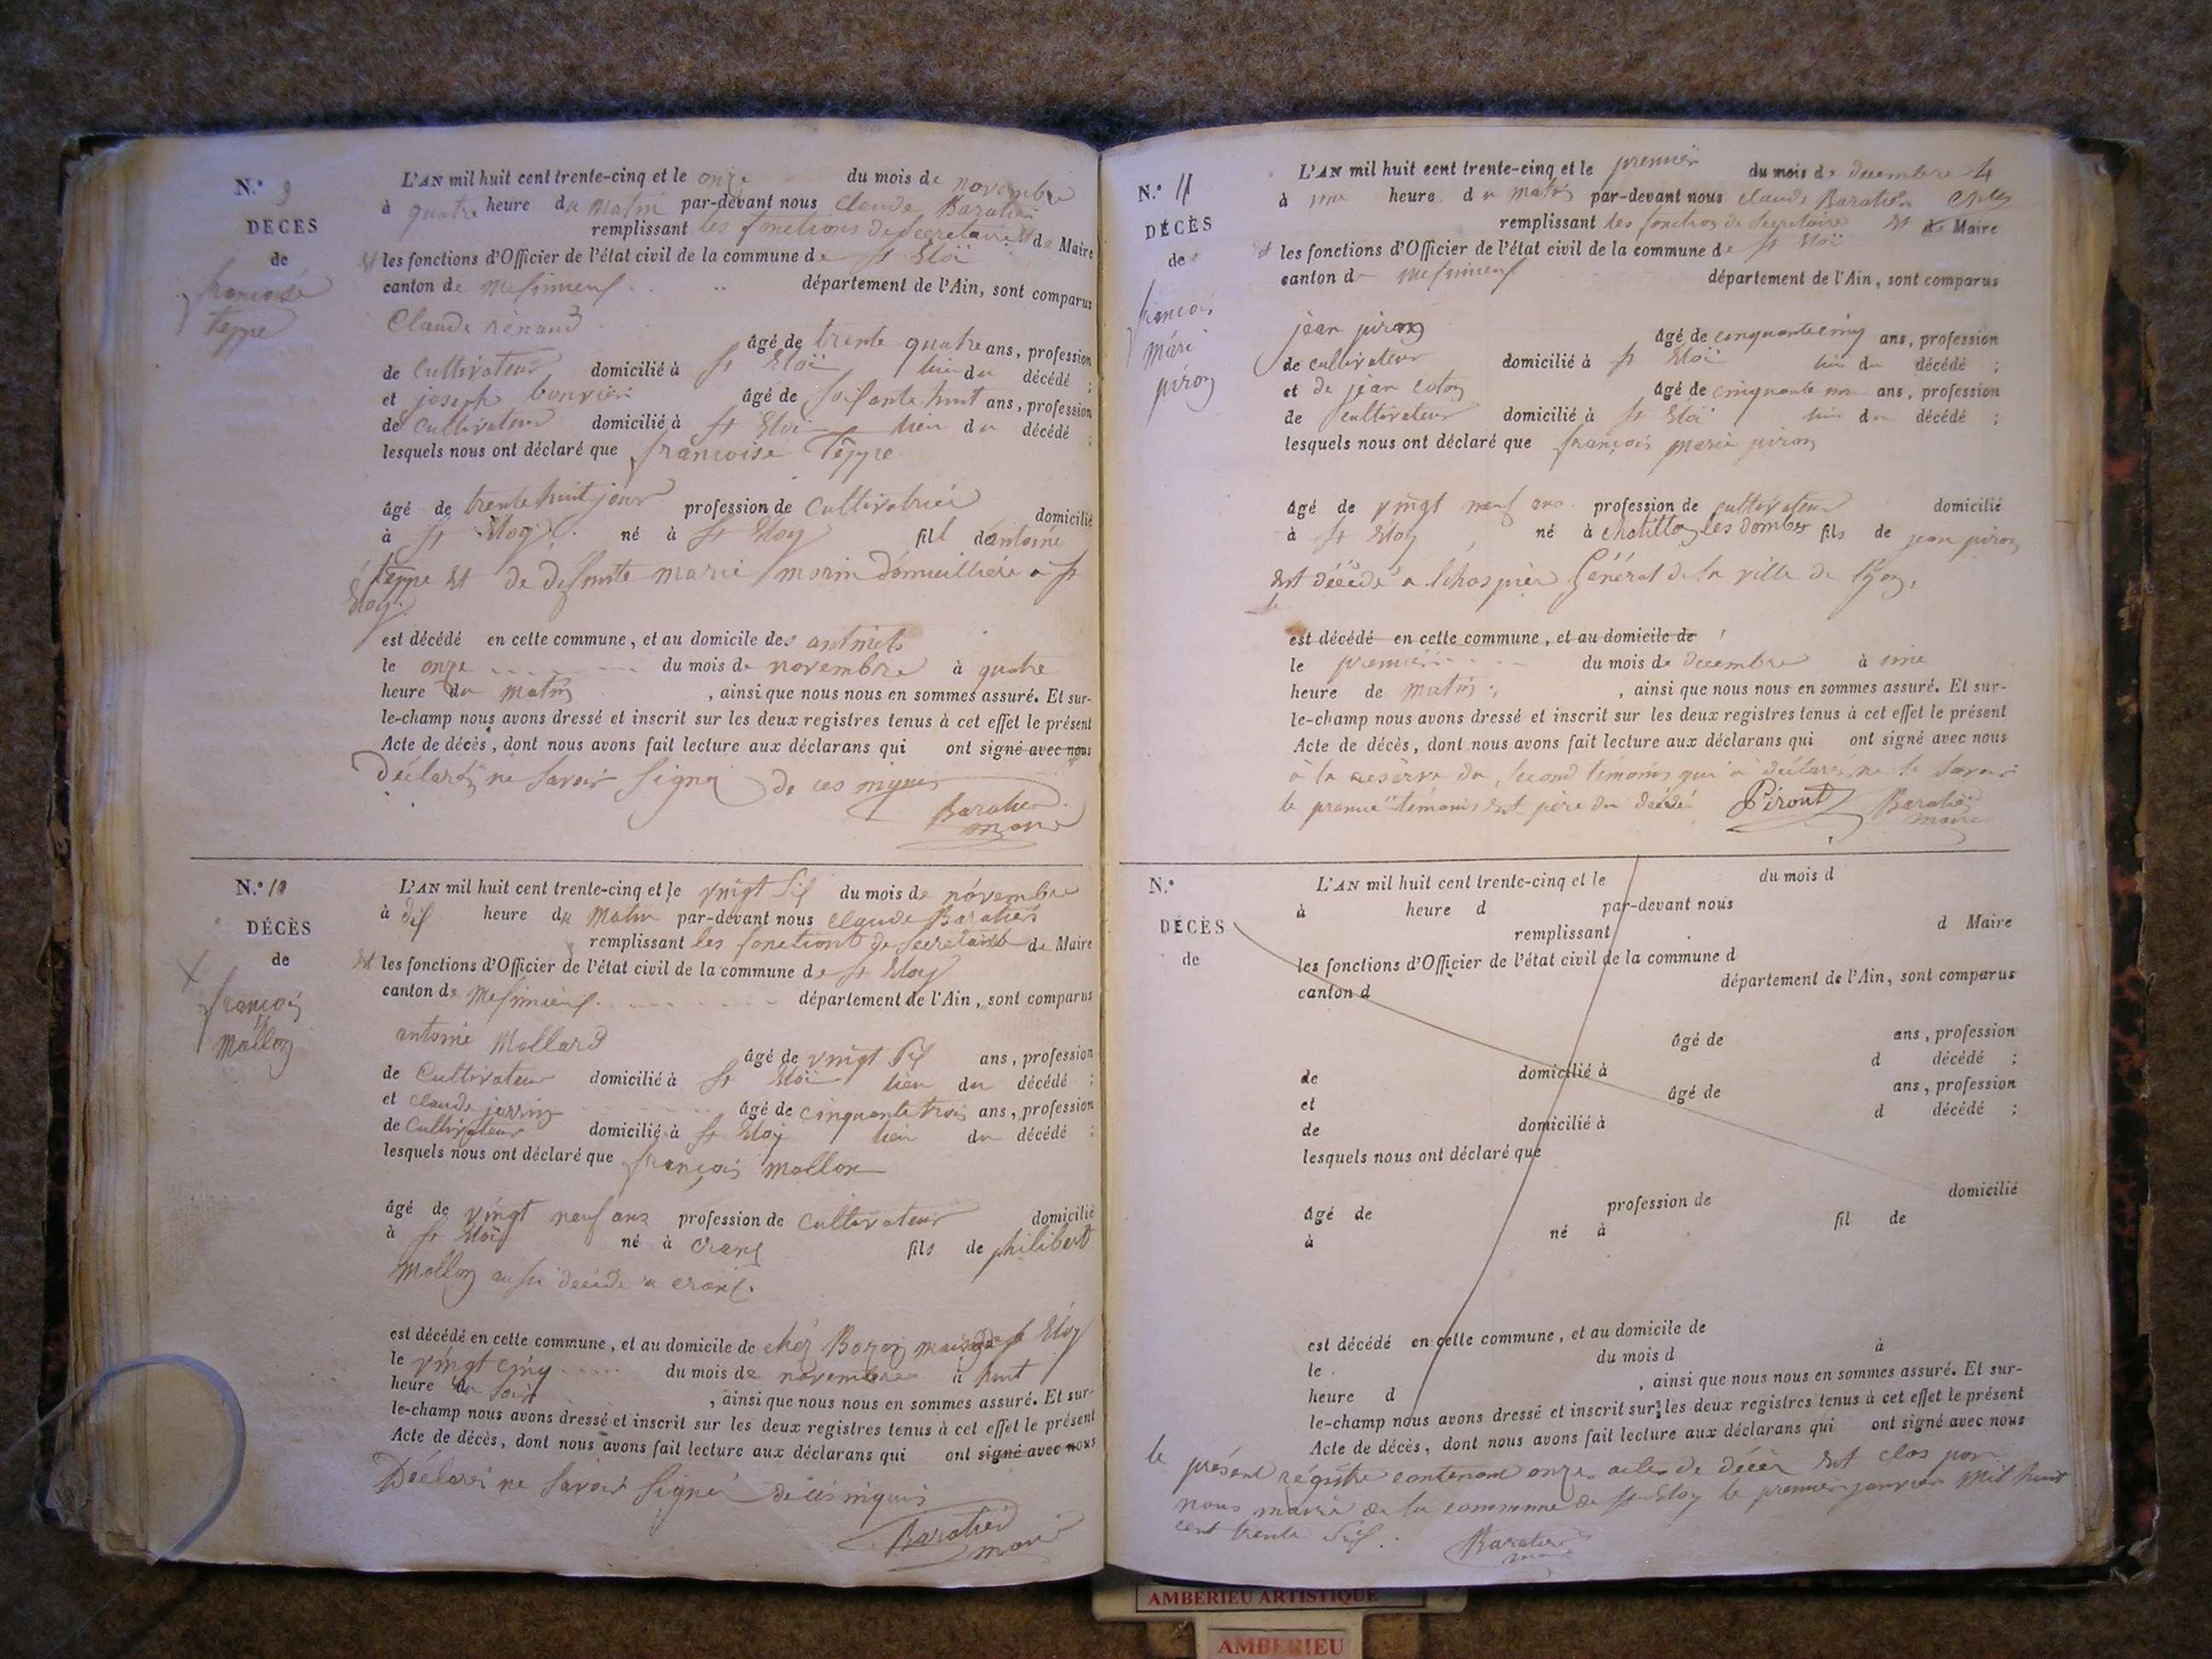 N.° 9
DÉCÈS
de
françoise
Teppe
L'AN mil huit cent trente-cinq et le onze du mois de novembre
à quatre heure du matin par-devant nous Claude Baratier
remplissant les fonctions de secretaire et de Maire
et les fonctions d'Officier de l'état civil de la commune de st Eloi
canton de département de l'Ain, sont comparus
Claude renaud
âgé de trente quatre ans, profession
de Cultivateur domicilié à st Eloi lieu du décédé ;
et joseph bouvier âgé de soisante huit ans, profession
de cultivateur domicilié à st Eloi lieu du décédé ;
lesquels nous ont déclaré que françoise Teppe
âgé de trente huit jour profession de Cultivatrice domicilié
à st Eloy né à st Eloy fill de antoine
teppe et de defunte marie morin domicilliére a st
Eloy.
est décédé en cette commune, et au domicile des
le onze du mois de novembre à quatre
heure du matin , ainsi que nous nous en sommes assuré. Et sur-
le-champ nous avons dressé et inscrit sur les deux registres tenus à cet effet le présent
Acte de décès, dont nous avons fait lecture aux déclarans qui ont signé avec nous
déclaré ne savoir signé de ces
Baratier
maire
N.° 10
DÉCÈS
de
françois
Mollon
L'AN mil huit cent trente-cinq et le vingt six du mois de novembre
à dix heure du Matin par-devant nous claude Baratier
remplissant les fonctions de secretaire de Maire
et les fonctions d'Officier de l'état civil de la commune de st Eloy
canton de département de l'Ain, sont comparus
antoine Mollard
âgé de vingt six ans, profession
de Cultivateur domicilié à st Eloi lieu du décédé ;
et claude jarrin âgé de cinquante trois ans, profession
de Cultivateur domicilié à st Eloy lieu du décédé ;
lesquels nous ont déclaré que françois mollon
âgé de vingt neuf ans profession de cultivateur domicilié
à st Eloi né à crans fils de philibert
Mollon aussi décédé a crans.
est décédé en cette commune, et au domicile de chez st Eloy
le vingt cinq du mois de novembre à huit
heure du soir , ainsi que nous nous en sommes assuré. Et sur-
le-champ nous avons dressé et inscrit sur les deux registres tenus à cet effet le présent
Acte de décès, dont nous avons fait lecture aux déclarans qui ont signé avec nous
Déclaré ne savoir signé de ces
Baratier
maire
N.° 11
DÉCÈS
de
françois
marie
piron
L'AN mil huit cent trente-cinq et le premier du mois de decembre
à une heure du matin par-devant nous claude Baratier
remplissant les fonction de secretaire et de Maire
et les fonctions d'Officier de l'état civil de la commune de st Eloi
canton de département de l'Ain, sont comparus
jean piron
âgé de cinquante cinq ans, profession
de cultivateur domicilié à st Eloi lieu du décédé ;
et de jean âgé de cinquante ans, profession
de cultivateur domicilié à st Eloi lieu du décédé ;
lesquels nous ont déclaré que françois marie piron
âgé de vingt neuf ans profession de cultivateur domicilié
à st Eloy né à chatillon les dombes fils de jean piron
est décédé a lhospice Général de la ville de lyon,
le
est décédé en cette commune, et au domicile de
le premier du mois de decembre à une
heure de matin , ainsi que nous nous en sommes assuré. Et sur-
le-champ nous avons dressé et inscrit sur les deux registres tenus à cet effet le présent
Acte de décès, dont nous avons fait lecture aux déclarans qui ont signé avec nous
à la reserve du second témoins qui a déclaré ne le savoir
le premier témoins est père du décédé Piront Baratier
maire
N.°
DÉCÈS
de
L'AN mil huit cent trente-cinq et le du mois d
à heure d par-devant nous
remplissant d Maire
les fonctions d'Officier de l'état civil de la commune d
canton d département de l'Ain, sont comparus
âgé de ans, profession
de domicilié à d décédé ;
et âgé de ans, profession
de domicilié à d décédé ;
lesquels nous ont déclaré que
âgé de profession de domicilié
à né à fil de
est décédé en cette commune, et au domicile de
le du mois d à
heure d , ainsi que nous nous en sommes assuré. Et sur-
le-champ nous avons dressé et inscrit sur les deux registres tenus à cet effet le présent
Acte de décès, dont nous avons fait lecture aux déclarans qui ont signé avec nous
le présent régistre contenant onze actes de décès est clos par
nous maire de la commune de st Eloy le premier janvier Mil huit
cent trente six.
Baratier
maire
AMBERIEU ARTISTIQUE
AMBERIEU